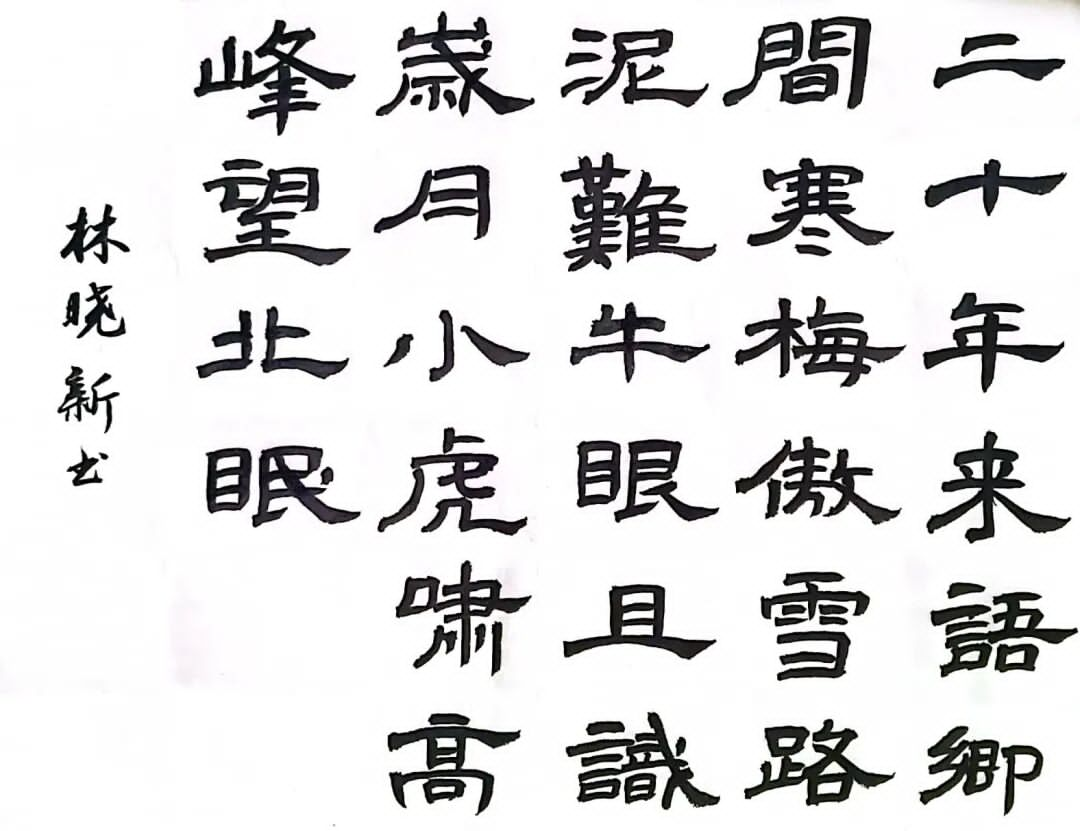 二十年来語鄉
間寒梅傲雪路
泥難牛眼且識
歲月小虎啸高
峰望北眠
林晓新书